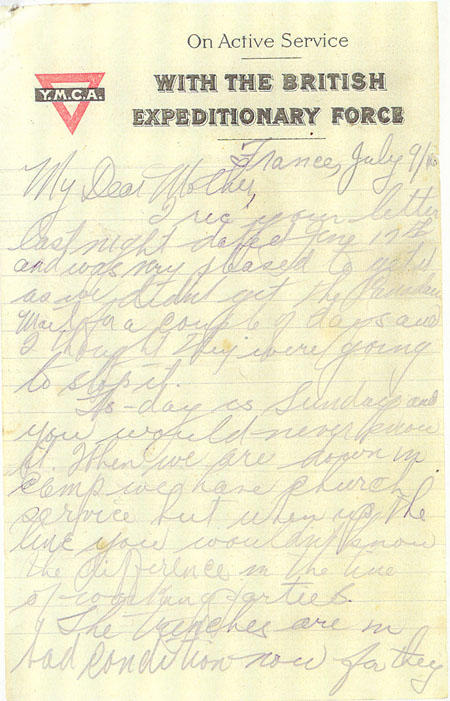 On Active Service
WITH THE BRITISH
EXPEDITIONARY FORCE
Y.M.C.A.
France, July 9/16
My Dear Mother,
I rec' your letter
last night dated June 17th
and was very pleased to get it
as we didnt get the Canadian
Mail for a couple of days and
I thought they were going
to stop it.
To-day is Sunday and
you would never know
it. When we are down in
camp we have church
service but when up the
line you wouldn't know
the difference in the line
of working parties.
The trenches are in
bad condition now for they